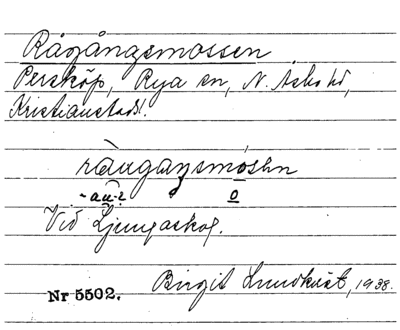 Rågångsmossen
Persköp, Rya sn, N. Åsbo hd,
Kristianstads l.
råugaŋsmosln
-au-? o
Vid Ljungaskog.
Nr 5502. Birgit Lundkvist, 1938.